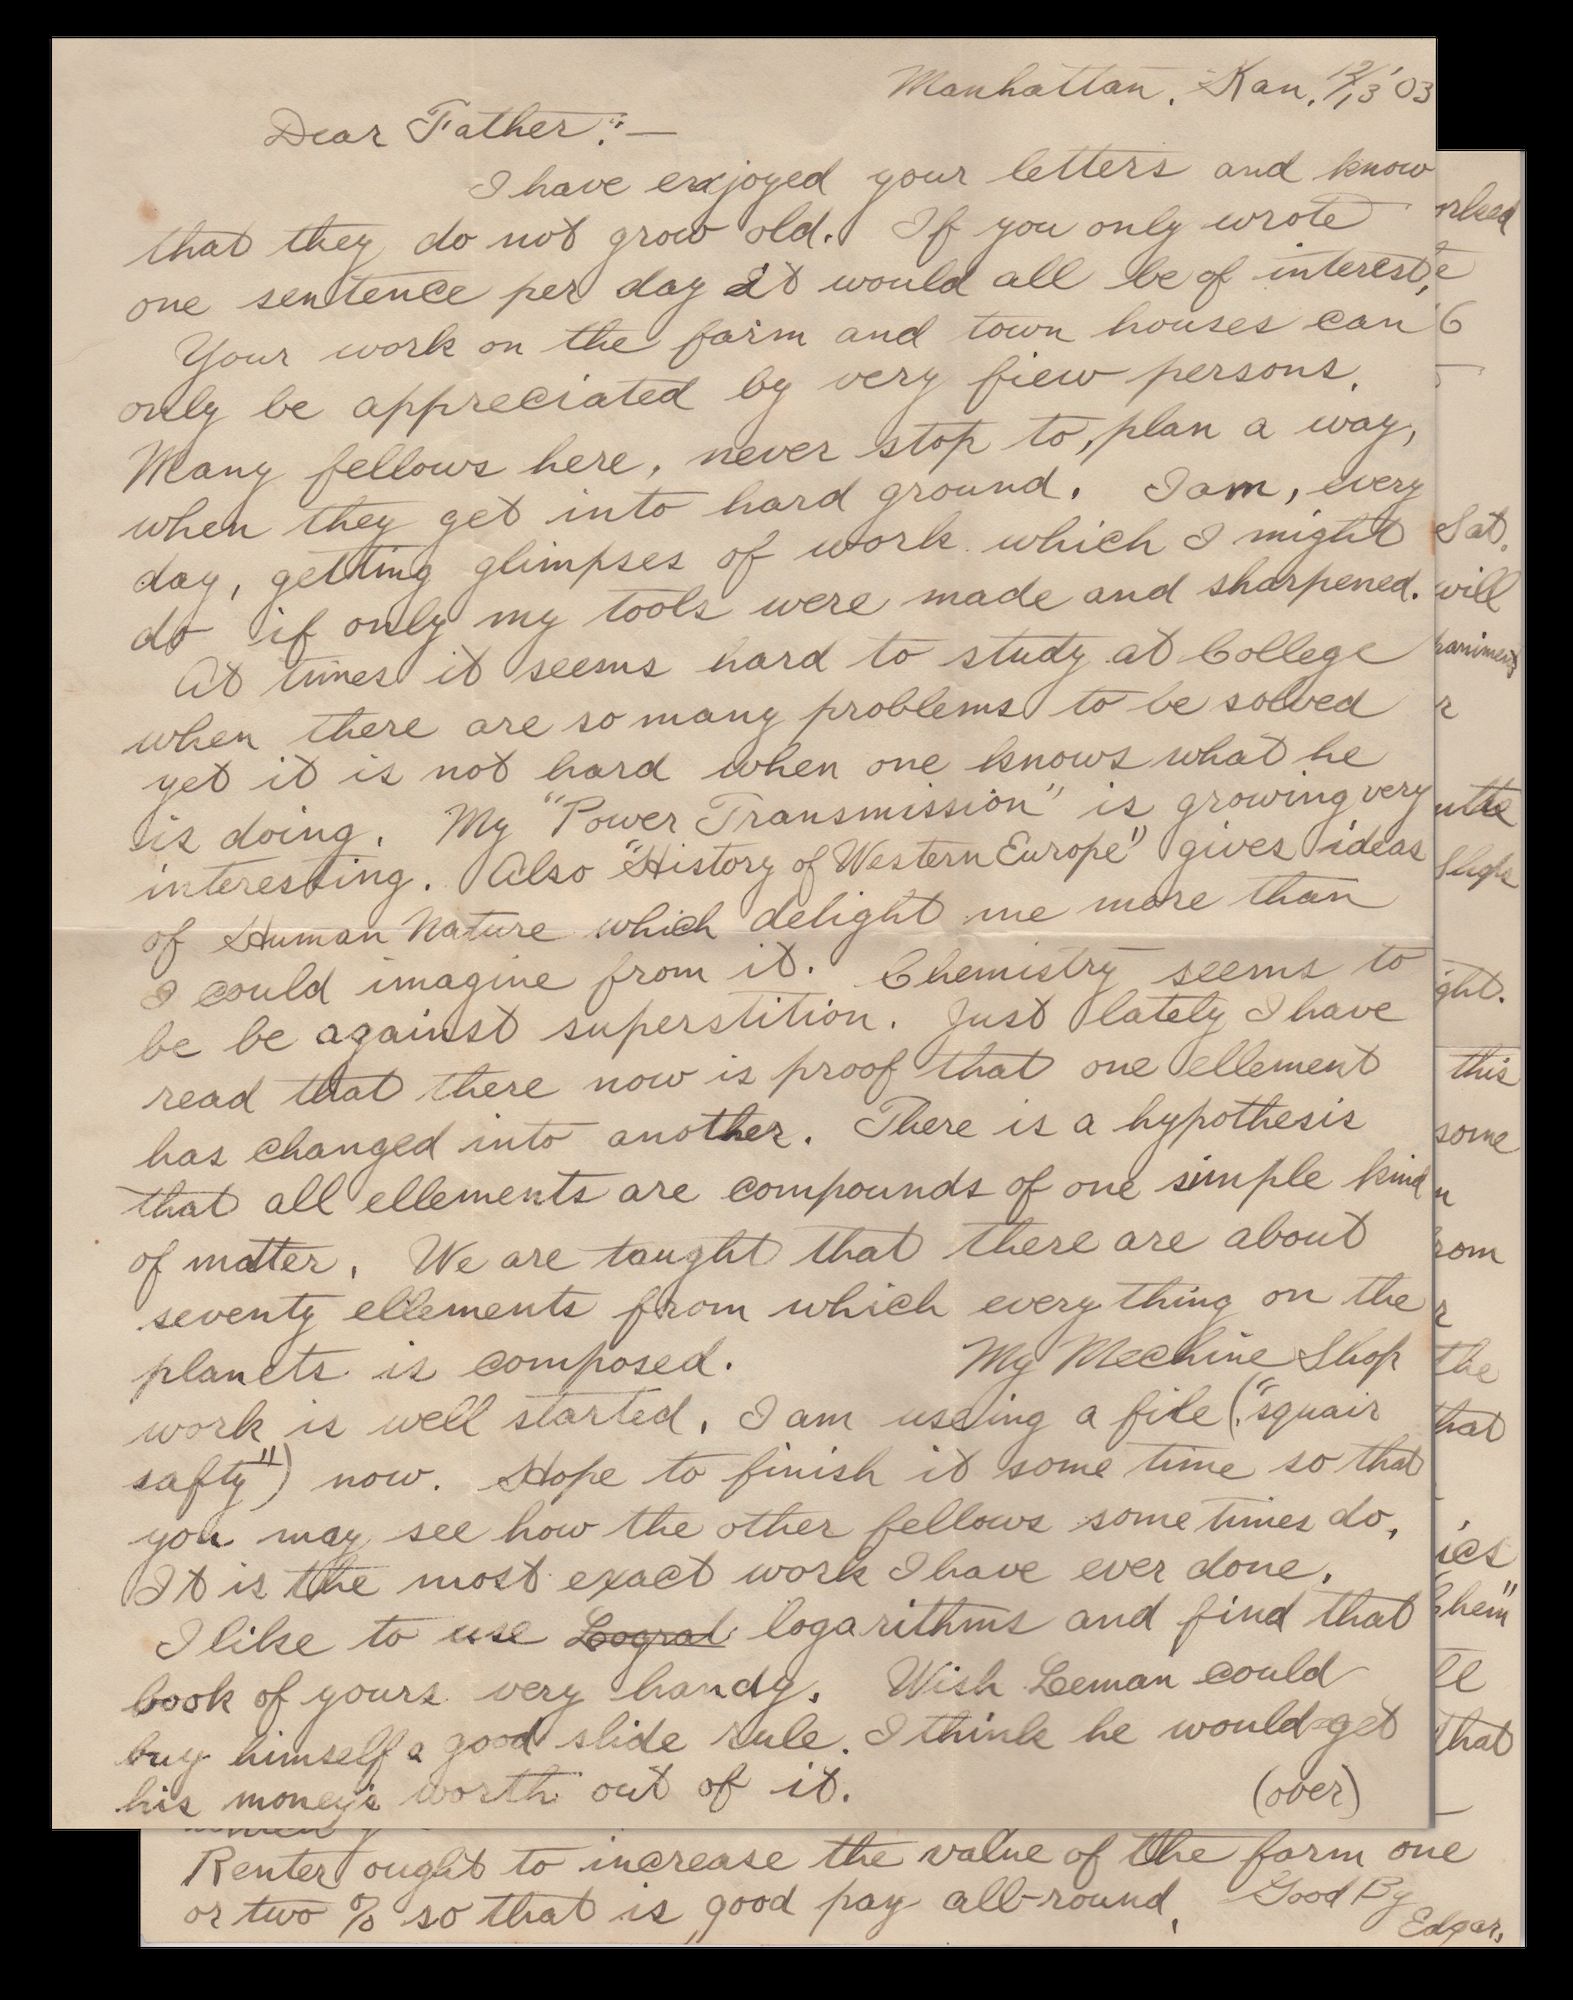 Manhattan, Kan. 12/13 '03
Dear Father:—
I have enjoyed your letters and know
that they do not grow old. If you only wrote
one sentence per day it would all be of interest,
Your work on the farm and town houses can
only be appreciated by very fiew persons.
Many fellows here, never stop to, plan a way,
when they get into hard ground. I am, every
day, getting glimpses of work which I might
do if only my tools were made and sharpened.
At times it seems hard to study at College
when there are so many problems to be solved
yet it is not hard when one knows what he
is doing. My "Power Transmission" is growing very
interesting. Also "History of Western Europe" gives ideas
of Human Nature which delight me more than
I could imagine from it. Chemistry seems to
be be against superstition. Just lately I have
read that there now is proof that one ellement
has changed into another. There is a hypothesis
that all ellements are compounds of one simple kind
of matter. We are taught that there are about
seventy ellements from which every thing on the
planets is composed. My Mechine Shop
work is well started. I am useing a file ("squair
safty") now. Hope to finish it some time so that
you may see how the other fellows some times do.
It is the most exact work I have ever done.
I like to use Lograt logarithms and find that
book of yours very handy. Wish Leman could
buy himself a good slide rule. I think he would get
his money's worth out of it. (over)
orked
e
6
Sat.
will
paniments
r
utte
Sligh
ght.
this
some
n
rom
r
the
that
ics
Chem"
ll
that
Renter ought to increase the value of the farm one
or two % so that is good pay all-round. Good By
Edgar.